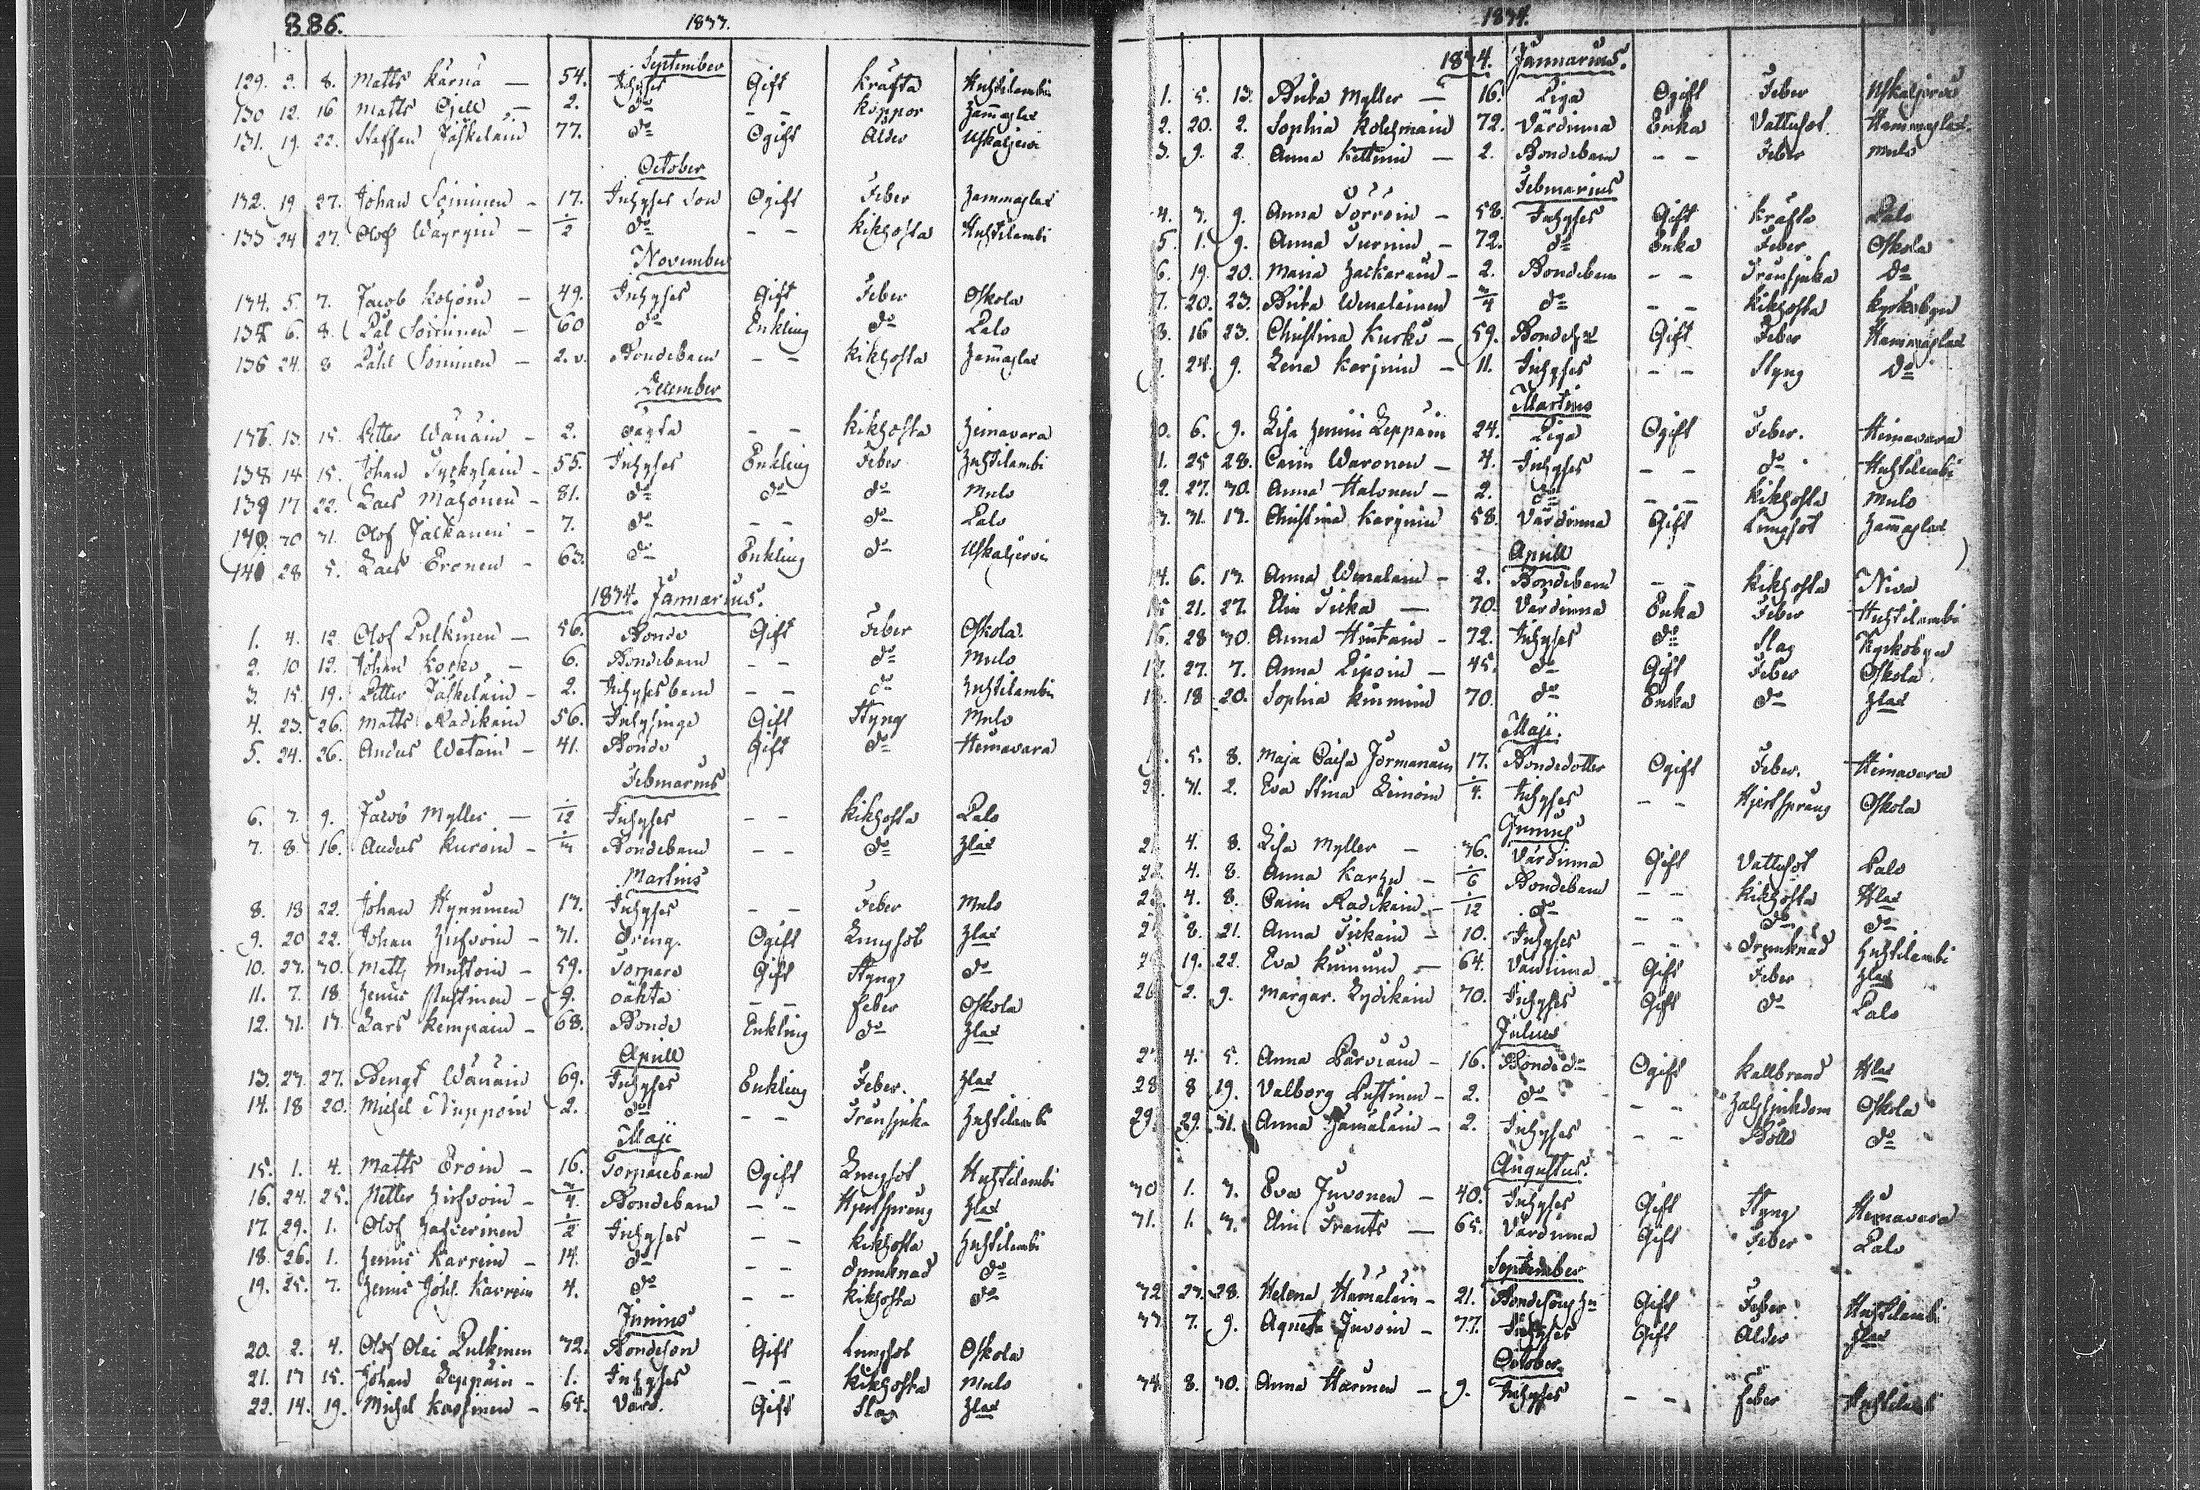 886.
1833.
September
129. 2. 8. Matts Kärnä — 54. Inhyses Gift kräfta Huhtilambi
130 12. 16 Matts Ojell — 2. do - - koppor Jammaglax
131. 19. 22. Staffan Jäskeläin 77. do Ogift Ålder Uskaljerwi
October
132. 19 27. Johan Soininen - 17. Inhyses Son Ogift Feber Jammaglax
133 24 27. Olof Wäyryin - 1/2 do - - kikhosta Huhtilambi
November
134. 5. 7. Jacob kohoin - 49. Inhyses Gift Feber Oskola
135 6. 8. Pål Soininen - 60 do Enkling do Palo
136 24. 8 Påhl Soininen - 2. v. Bondebarn - - kikhosta Jammaglax
December
136. 13. 15. Petter Wänäin - 2. oägta - - kikhosta Heinavara
138 14 15. Johan Tyckyläin - 55. Inhyses Enkling Feber Huhtilambi
139 17 22. Lars Mähönen - 81. do do do Mulo
140 30 31. Olof Jälkanen - 7. do - - do Palo
141 28 5. Lars Eronen - 63. do Enkling do Uskaljerwi
1834. Januarius.
1. 4. 12. Olof Pulkinen - 56. Bonde Gift Feber Oskola.
2. 10 12. Johan Kosko - 6. Bondebarn - - do Mulo
3. 15 19. Petter Jäskeläin - 2. Inhyses barn - - do Huhtilambi
4. 23. 26. Matts Radikain 56. Inhysinge Gift Styng Mulo
5. 24. 26. Anders Watain - 41. Bonde Gift do Heinavara
Februarius
6. 7. 9. Jacob Myller — 1/12 Inhyses - - kikhosta Palo
7. 8. 16. Anders kuroin - 1/3 Bondebarn - - do Hlax
Martius
8. 18 22. Johan Hynninen 13. Inhyses - - Feber Mulo
9. 20 22. Johan Hirfvoin - 31. Dreng. Ogift Lungsot Hlax
10. 23. 30. Matts Mustoin - 59. Torpare Gift Styng do
11. 7. 18. Henric Mustinen - 9. oäkta - - feber Oskola
12. 31. 13. Lars kempain - 68. Bonde Enkling do Hlax
Aprill
13. 23. 27. Bengt Wänäin 69. Inhyses Enkling Feber. Hlax
14. 18 20. Michel Nuppoin - 2. do - - Trånsjuka Huhtilambi
Maji
15. 1. 4. Matts Eroin - 16. Torparebarn Ogift Lungsot Huhtilambi
16. 24. 25. Petter Hirfvoin - 3/4 Bondebarn - - Hjertsprång Hlax
17. 29. 1. Olof 1/2 Inhyses - - kikhosta Huhtilambi
18. 26. 1. Henric Karrein - 14. do - - drunknad do
19. 25. 7. Henric Joh. Karrein 4. do - - kikhosta do
Junius
20. 2. 4. Olof Olai Pulkinen 32. Bondeson Gift Lungsot Oskola
21. 13 15. Johan Leppäin - 1. Inhyses - - kikhosta Mulo
22. 14. 19. Michel Kossinen - 64. Värd. Gift Slag Hlax
1834.
1834. Januarius.
1. 5. 13. Brita Myller — 16. Piga Ogift Feber Uskaljerwi
2. 20. 2. Sophia Kolehmain 72. Värdinna Enka Vattusot Hammaslax
3. 9. 2. Anna Kettuin — 2. Bondebarn - - Feber Mulo
Februarius
4. 3. 9. Anna Torroin - 58. Inhyses Gift kräfta Palo
5. 1. 9. Anna Turuin - 72. do Enka Feber Oskola
6. 19. 20. Maria Zackarein - 2. Bondebarn - - Trånsjuka do
7. 20. 23. Brita Wenäläinen 3/4 do - - kikhosta kyrkobyn
8. 16 23. Christina Kurko - 59. Bondehu Gift Feber Hammaslax
24. 9. Lena Karjuin - 11. Inhyses - - Styng do
Martius
0. 6. 9. Lisa Henrici Leppäin 24. Piga Ogift Feber. Heinavara
1. 25 28. Carin Waronen - 4. Inhyses - - do Huhtilambi
2. 27. 30. Anna Halonen - 2. do - - kikhosta Mulo
3. 31. 13. Christina Karjuin 58. Värdinna Gift Lungsot Jammaglax
Aprill
14. 6. 13. Anna Wenäläin - 2. Bondebarn - - kikhosta Niva
15 21. 27. Elin Ticka — 70. Värdinna Enka Feber Huhtilambi
16. 28 30. Anna Hintain - 72. Inhyses do Slag Kyrkobyn
17. 27. 7. Anna Piipoin - 45. do Gift Feber Oskola
18. 18 20. Sophia Kinnuin 70. do Enka do Hlax
Maji.
5. 8. Maja Caisa Jormanain 17. Bondedotter Ogift Feber. Heinavara
2 31. 2. Eva Stina Leinoin 1/4. Inhyses - - Hjertsprång Oskola
Junius
21 4. 8. Lisa Myller - 36. Värdinna Gift Vattusot Palo
22 4. 8. Anna Karhu - 1/6 Bondebarn - - kikhosta Hlax
23 4. 8. Carin Radikain - 1/12 do - - do do
24 8. 21. Anna Tickain - 10. Inhyses - - drunknad Huhtilambi
25 19. 22. Eva Kinnuin - 64. Värdinna Gift Feber Hlax
26 2. 9. Margar. Lydikäin 70. Inhyses Gift do Palo
Julius
27 4. 5. Anna Parviain - 16. Bonde do Ogift kallbrand Hlax
28 8 19. Valborg Pustinen - 2. do - - Halssjukdom Oskola
29. 29. 31. Anna Jämäläin - 2. Inhyses - - Böld do
Augustus.
30 1. 3. Eva Juvonen - 40. Inhyses Gift Styng Heinavara
31. 1. 3. Elin Frants - 65. Värdinna Gift Feber Palo
September
32. 23. 28. Helena Hämäläin - 21. Bondesons hu Gift Feber Huhtilambi
33 7. 9. Agneta Juvoin - 77. Inhyses Gift Ålder Hlax
October
34. 8. 30. Anna Harinen - 9. Inhyses - - feber Huhtilambi